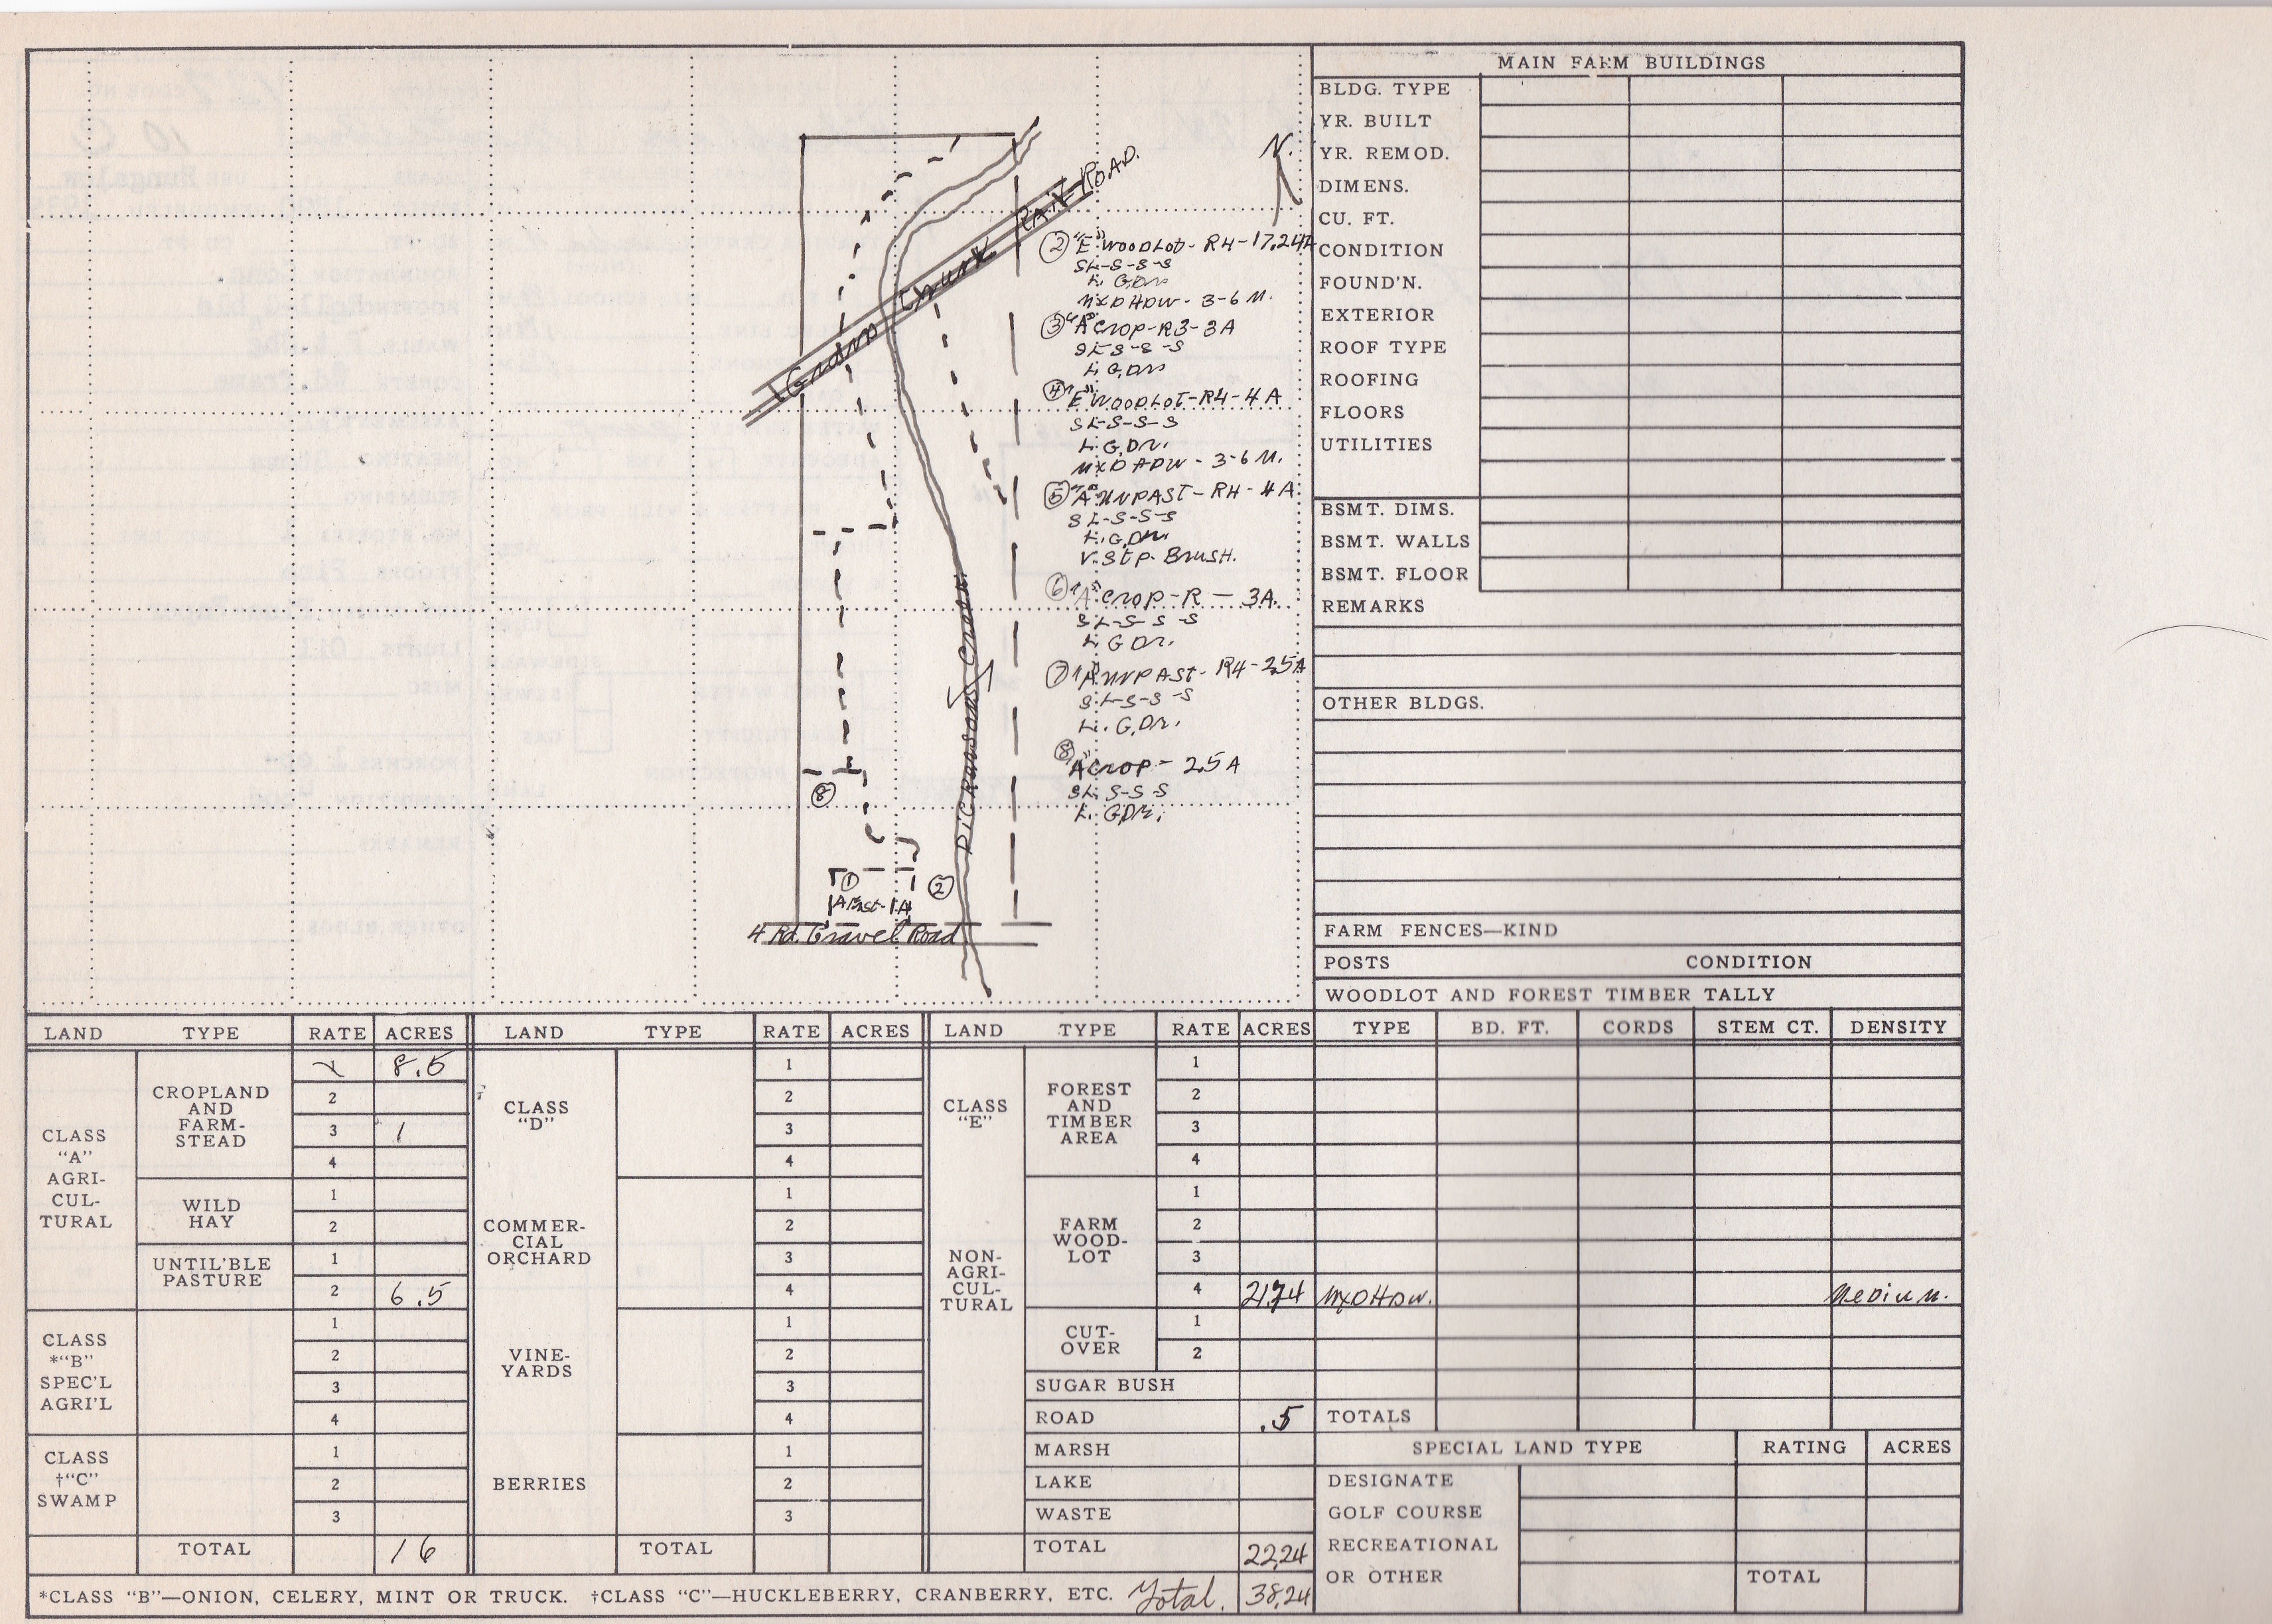 MAIN FARM BUILDINGS
BLDG. TYPE
YR. BUILT
YR. REMOD.
DIMENS.
CU. FT.
CONDITION
FOUND'N.
EXTERIOR
ROOF TYPE
ROOFING
FLOORS
UTILITIES
BSMT. DIMS.
BSMT. WALLS
BSMT. FLOOR
REMARKS
OTHER BLDGS.
FARM FENCES—KIND
POSTS CONDITION
WOODLOT AND FOREST TIMBER TALLY
N.
Grand Trunk Rail Road.
② "E" Woodlot - R4 - 17.24A
SL-S-S-S
L. G, Dr
MXD HDW - 3-6 M.
③ "A" Crop - R3 - 3A
SL-S-S-S
L. G, Dr
④ "E" Woodlot - R4 - 4A
SL-S-S-S
L. G, Dr.
MXD HDW - 3-6 M.
⑤ "A" UNPAST - R4 - 4A
SL-S-S-S
L. G, Dr.
V. Stp. Brush.
⑥ "A" Crop - R — 3A.
SL-S-S-S
L. G Dr.
⑦ "A" UNPAST - R4 - 2.5A
SL-S-S-S
L. G, Dr.
⑧ "A" Crop - 2.5A
SL. S-S-S
L. G, Dr.
Creek.
⑧
①
②
4 Rd. Gravel Road
LAND TYPE RATE ACRES LAND TYPE RATE ACRES LAND TYPE RATE ACRES TYPE BD. FT. CORDS STEM CT. DENSITY
CLASS "A" AGRI-CUL-TURAL
CROPLAND AND FARM-STEAD
1 8.5
2
3 1
4
WILD HAY
1
2
UNTIL'BLE PASTURE
1
2 6.5
CLASS *"B" SPEC'L AGRI'L
1
2
3
4
CLASS †"C" SWAMP
1
2
3
TOTAL 16
CLASS "D"
1
2
3
4
COMMER-CIAL ORCHARD
1
2
3
4
VINE-YARDS
1
2
3
4
BERRIES
1
2
3
TOTAL
CLASS "E"
NON-AGRI-CUL-TURAL
FOREST AND TIMBER AREA
1
2
3
4
FARM WOOD-LOT
1
2
3
4 21.24 MXD HDW. Medium.
CUT-OVER
1
2
SUGAR BUSH
ROAD .5 TOTALS
MARSH
LAKE
WASTE
TOTAL 22.24
SPECIAL LAND TYPE RATING ACRES
DESIGNATE
GOLF COURSE
RECREATIONAL
OR OTHER TOTAL
*CLASS "B"—ONION, CELERY, MINT OR TRUCK. †CLASS "C"—HUCKLEBERRY, CRANBERRY, ETC. Total. 38.24